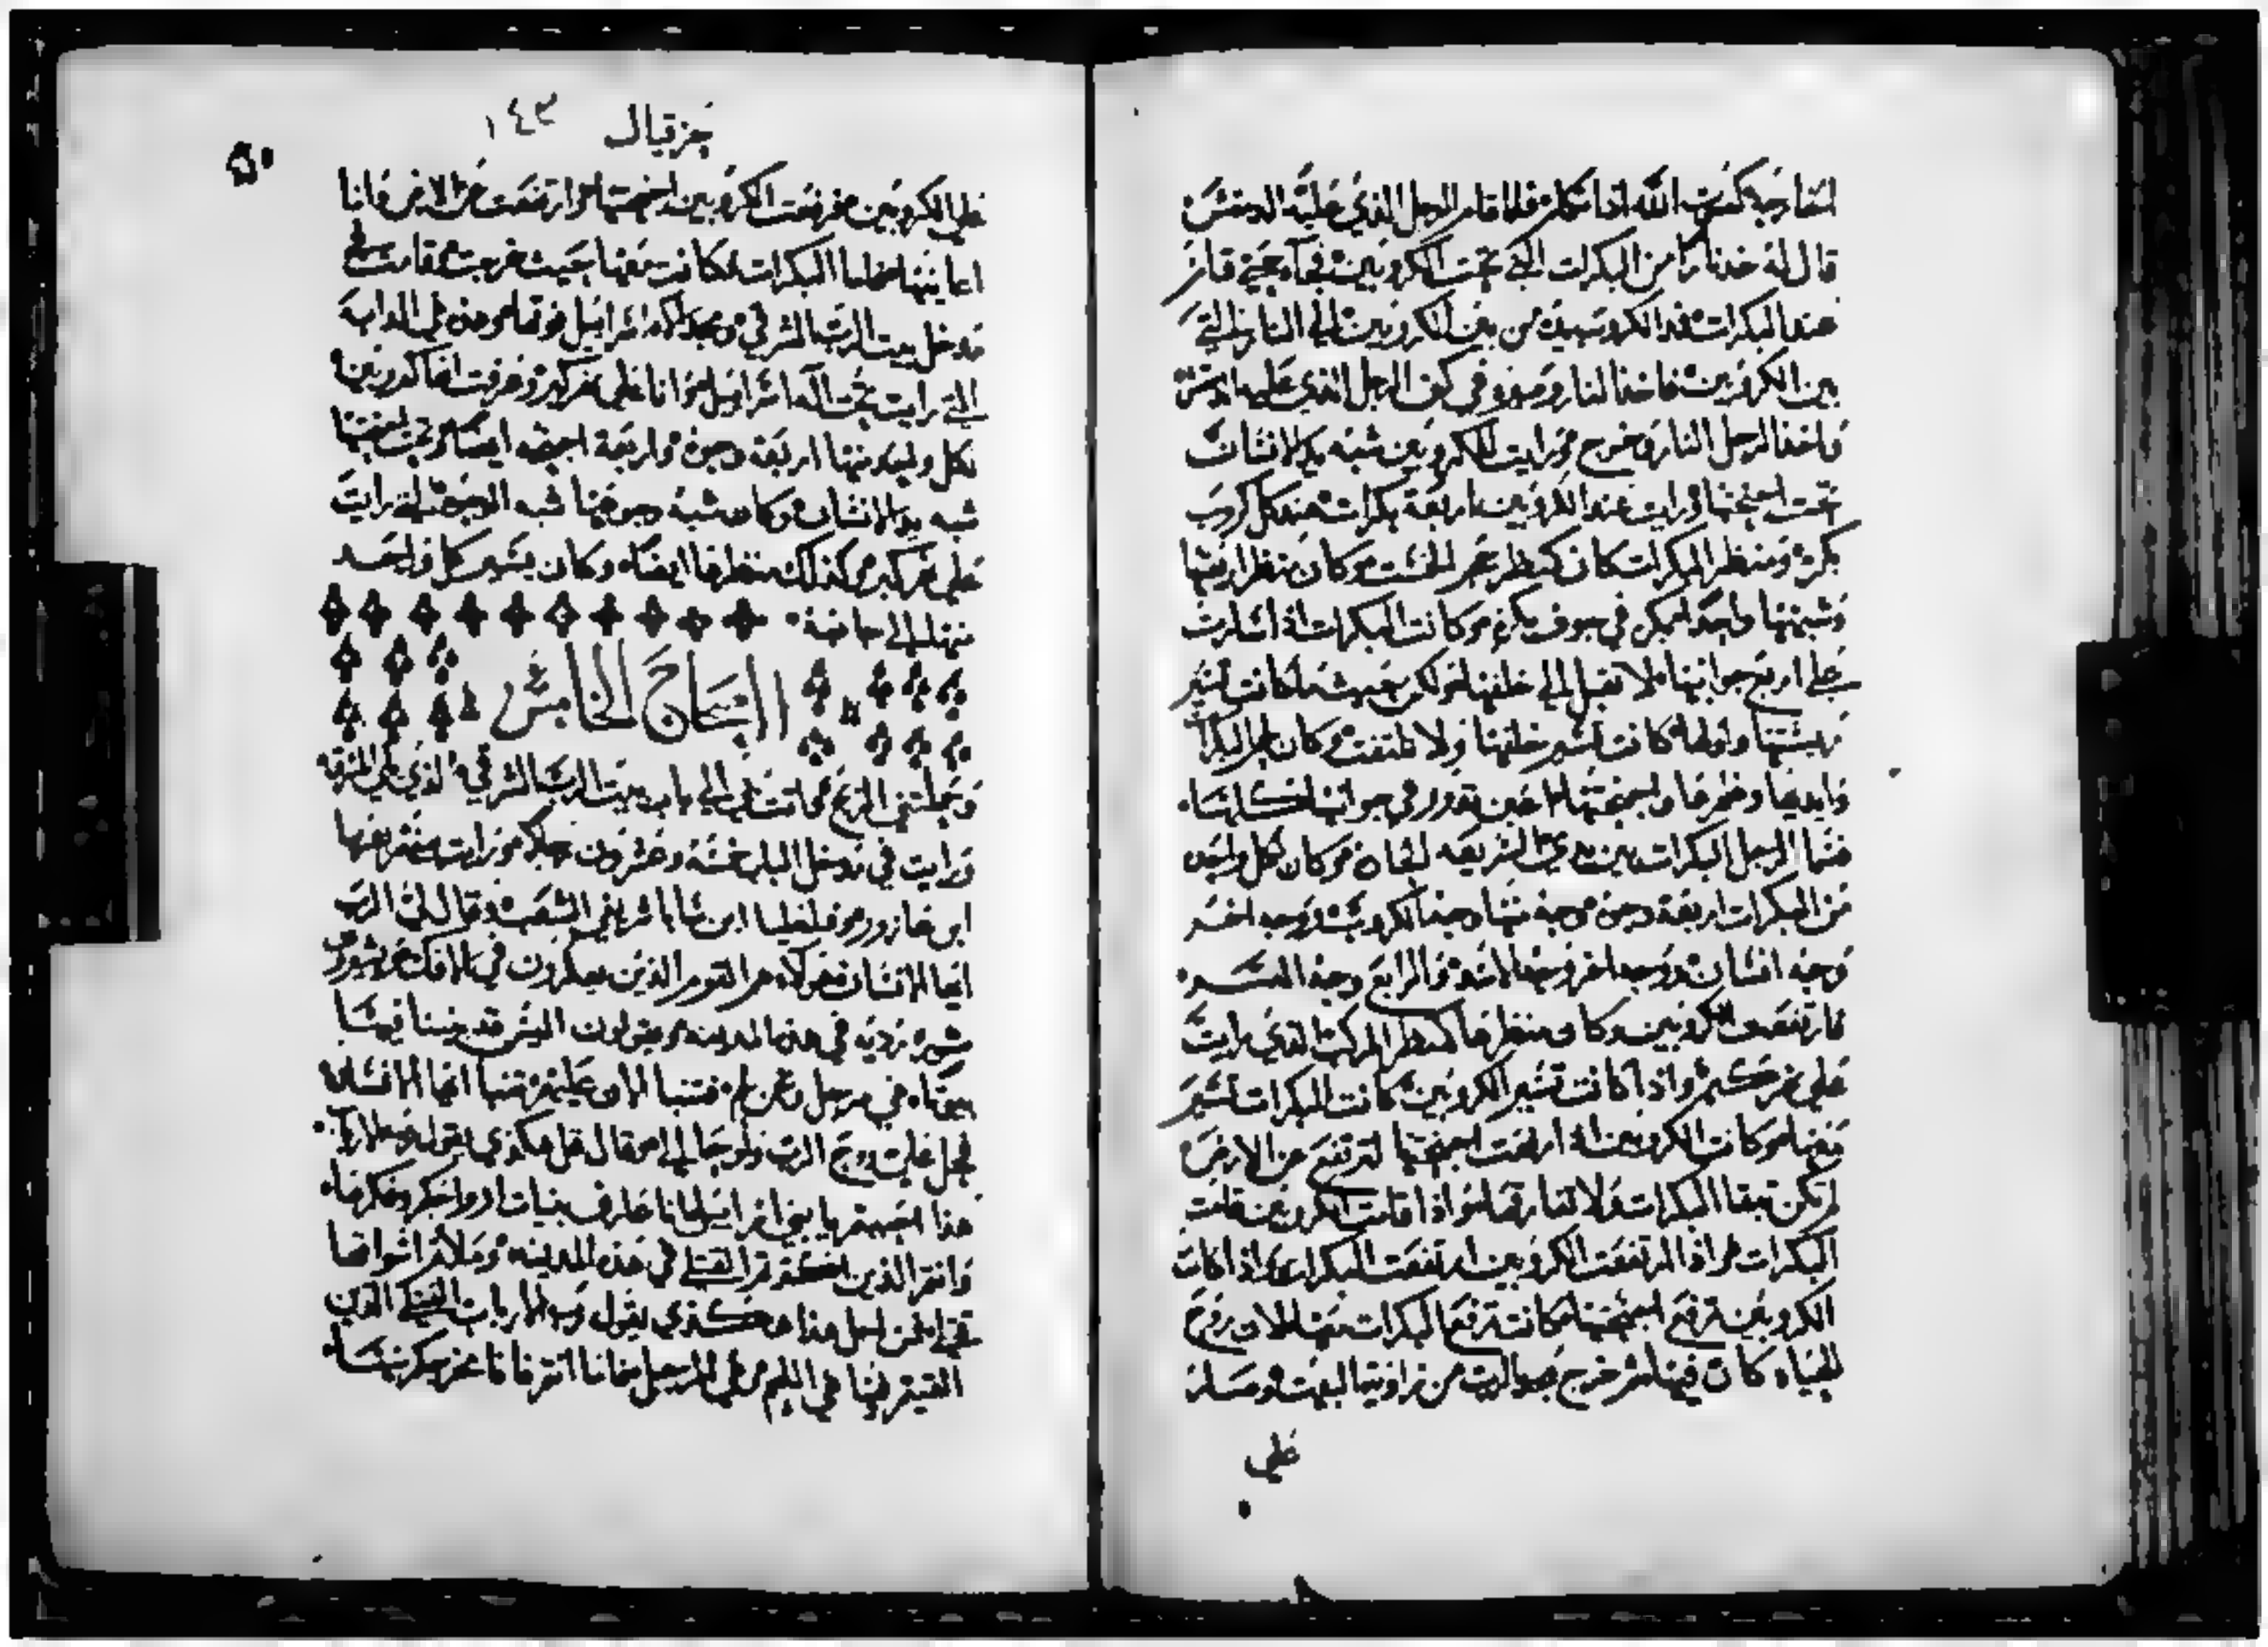 الخارجه كصوت الله اذا تكلم فلما قام الرجل الذي عليه الدمقس
قال له خذ نارًا من البكرات التي تحت الكروبين فجآ حتي قام
عند البكرات فمد الكروب يده من بين الكروبين الي النار التي
بين الكروبين فاخذ النار وصير في كف الرجل الذي عليه الدمقس
واخذ الرجل النار وخرج ورايت للكروبين شبه يد الانسان
تحت اجنحتها ورايت عند الكروبين اربعة بكرات عند كل كروب
بكره ومنظر البكرات كان كمنظر حجر وكان منظر اربعتها
وشبهها واحد البكره في جوف بكره وكانت البكرات اذا سارت
علي اربع جوانبها لا تقبل الي خلفها لكن حيث ما كانت تسير
رؤستها واولها كانت تسير خلفها ولا تلتفت وكان ظهر البكرات
وايديها وظهرها واجنحتها اعين تدور في جوانبها كلها
فسما الرجل البكرات بين يدي السريعه وكان لكل واحد
من البكرات اربعة وجوه وجه منها وجه الكروب ووجه اخر
وجه انسان ووجه اخر وجه الاسد والرابع وجه النسر
فارتفعت الكروبين وكان منظرها كمنظر المركب الذي رايت
علي نهر كبر واذا كانت تسير الكروبين كانت البكرات تسير
معها وكانت الكروبين اذا رفعت اجنحتها لترتفع عن الارض
لم تكن تبقا البكرات ولا تفارقها واذا قامت الكروبين قامت
البكرات واذا ارتفعت الكروبين ارتفعت البكرات واذا كانت
الكروبين ترفع اجنحتها كانت ترفع البكرات معها لان روح
الحياه كان فيها ثم خرج مجد الرب من زاوية البيت وصار
علي
حزقيال ١٤٣
٥٠
علي الكروبين فرفعت الكروبين اجنحتها وارتفعت عن الارض وانا
اعاينها فاما البكرات فكانت معها حيث خرجت وقامت في
مدخل بيت الرب الشرقي ومجد اله اسرائيل فوقها وهذه هي الدابه
التي رايت تحت اله اسرائيل وانا علي نهر كبر وعرفت انها كروبين
لكل واحد منها اربعة وجوه واربعة اجنحه ايضا وتحت اجنحتها
شبه يد الانسان وكان شبه وجوهها شبه الوجوه التي رايت
علي نهر كبر كذلك منظرها ايضا وكان يسير كل واحد
منها الي جانبه
الاصحاح الخامس
وحملتني الريح فجاءت بي الي باب بيت الرب الشرقي الذي يلي المشرق
ورايت في مدخل الباب خمسة وعشرون رجلًا ورايت منهم
ابن عازور وفلطيا ابن بنايا شريفي الشعب وقال لي الرب
ايها الانسان هولاء هم القوم الذين يفكرون في الافك ويشورون
شوره رديه في هذه المدينه ويقولون اليس قد بنينا فيها
بيوتًا هي مرجل ونحن لحم فتنبا الان عليهم تنبا ايها الانسان
فحل علي روح الرب واوحا الي وقال قل هكذي يقول
هذا احببتم يا بني اسرائيل انا عارف بنيات ارواحكم وفكرها
وانتم الذين اكثرتم القتلي في هذه المدينه وملاتم اسواقها
قتلا من اجل هذا هكذي يقول رب الارباب القتلي الذين
القيتم فيها هي اللحم وهي المرجل فاما انتم فانا مخرجكم منها